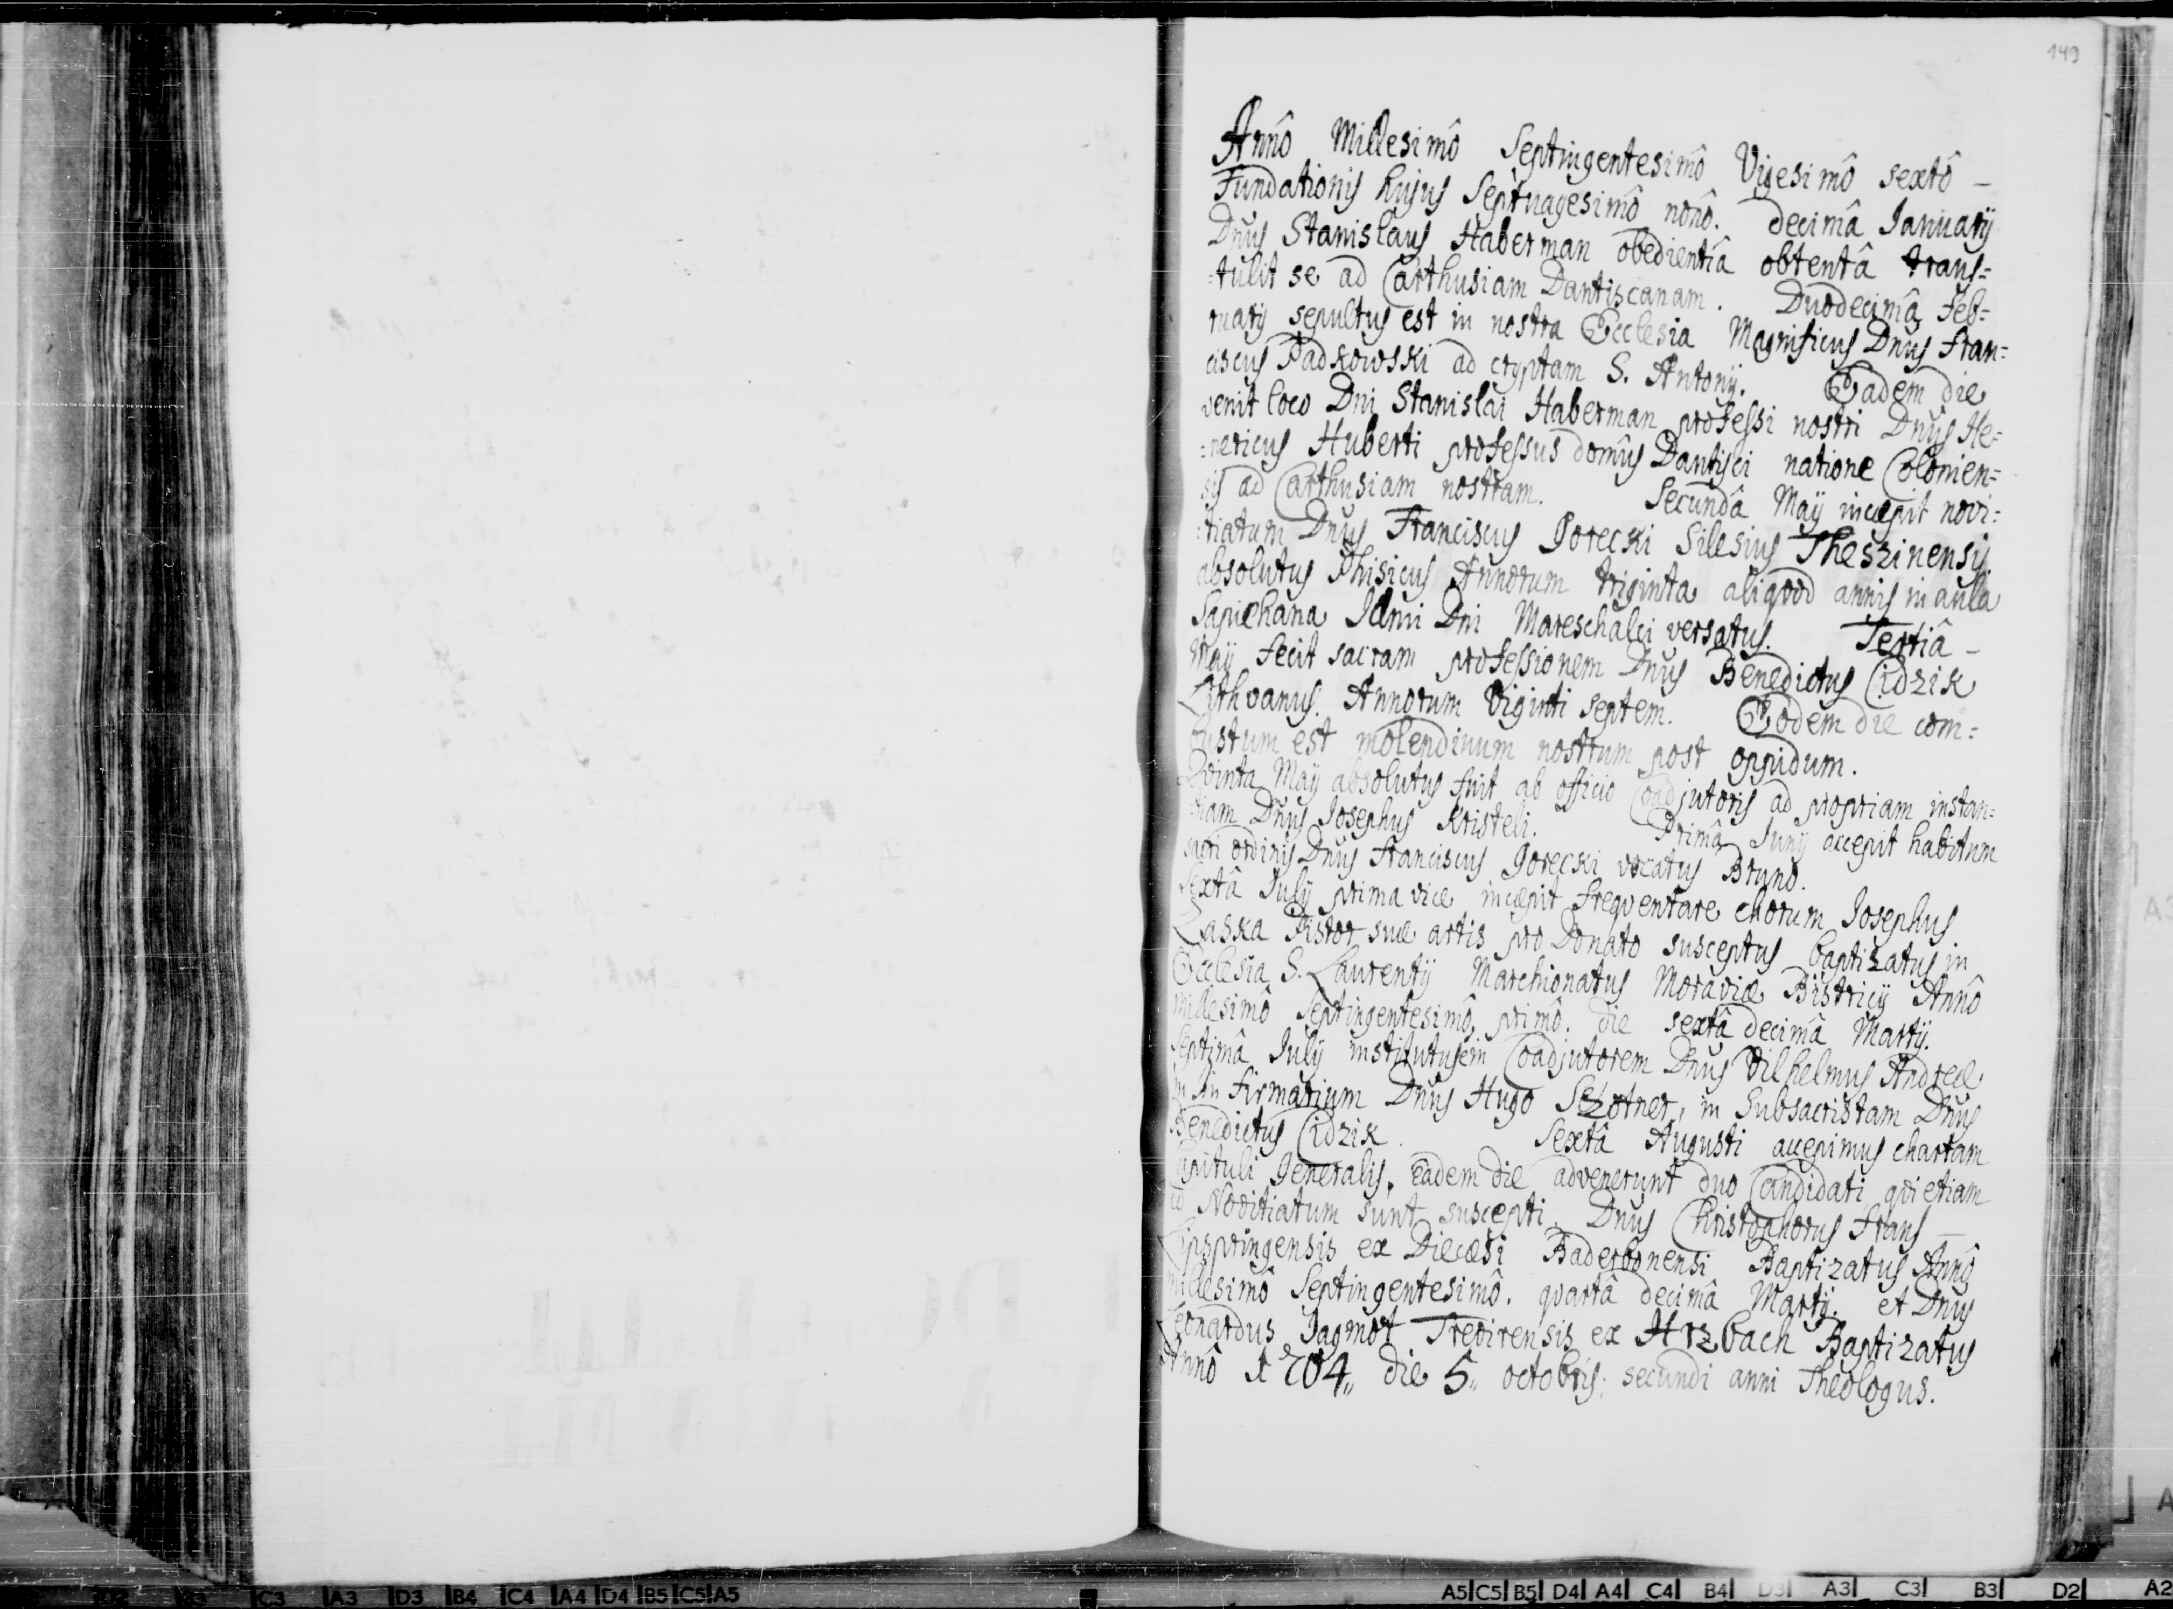 149
Annô Millesimô Septingentesimô Vigesimô sextô –
Fundationis hujus Septuagesimô nonô. decimâ Ianuarÿ
Dnus Stanislaus Haberman obedientiâ obtentâ trans=
:tulit se ad Carthusiam Dantiscanam. Duodecimâ Feb=
ruarÿ sepultus est in nostra Ecclesia Magnificus Dnus Fran=
ciscus Padkowski ad cryptam S. Antonÿ. Eadem die
venit loco Dni Stanislai Haberman professi nostri Dnus He=
:nericus Huberti professus domûs Dantisci natione Colonien=
sis ad Carthusiam nostram. Secundâ Maÿ incæpit novi:
:tiatum Dnus Franciscus Gorecki Silesius Theszinensis
absolutus Phisicus Annorum triginta aliqvod annis in aula
Sapiehana Illmi Dni Mareschalci versatus. Tertiâ –
Maÿ fecit sacram professionem Dnus Benedictus Cidzik
Lithvanus. Annorum Viginti septem. Eodem die com:
bustum est molendinum nostrum post oppidum.
Qvinta Maÿ absolutus fuit ab officio Coadjutoris ad propriam instan=
tiam Dnus Iosephus Kristeli. Primâ Iunÿ accepit habitum
sacri ordinis Dnus Franciscus Gorecki vocatus Bruno.
Sextâ Iulÿ prima vice incæpit freqventare chorum Iosephus
Laska Pistor suæ artis pro Donato susceptus baptizatus in
Ecclesia S. Laurentÿ Marchionatus Moraviæ Bistricÿ Annô
millesimô Septingentesimô primô. die sextâ decimâ Martÿ.
Septimâ Iulÿ institutus in Coadjutorem Dnus Vilhelmus Andreæ
in Infirmarium Dnus Hugo Sezotner, in Subsacristam Dnus
Benedictus Cidzik. Sextâ Augusti accepimus chartam
Capituli Generalis. eadem die advenerunt duo Candidati qvi etiam
ad Novitiatum sunt suscepti Dnus Christophorus Frans –
Lipspringensis ex Diecæsi Baderbonensi Baptizatus Annô
millesimô Septingentesimô. qvartâ decimâ Martÿ. et Dnus
Leonardus Jagmot Trevirensis ex Hrzbach Baptizatus
Annô 1704,, die 5,, octobris: secundi anni Theologus.